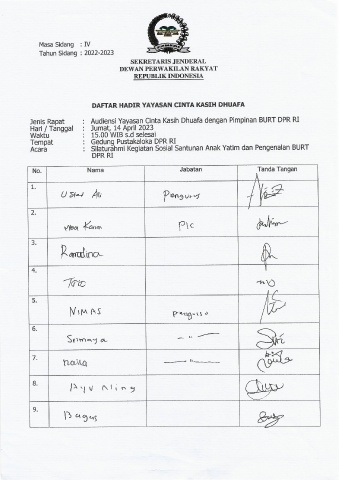 Masa Sidang : IV
Tahun Sidang : 2022-2023
SEKRETARIS JENDERAL
DEWAN PERWAKILAN RAKYAT
REPUBLIK INDONESIA
DAFTAR HADIR YAYASAN CINTA KASIH DHUAFA
Jenis Rapat : Audiensi Yayasan Cinta Kasih Dhuafa dengan Pimpinan BURT DPR RI
Hari / Tanggal : Jumat, 14 April 2023
Waktu : 15.00 WIB s.d selesai
Tempat : Gedung Pustakaloka DPR RI
Acara : Silaturahmi Kegiatan Sosial Santunan Anak Yatim dan Pengenalan BURT
DPR RI
No. Nama Jabatan Tanda Tangan
1. Pengurus
2. Pic
3. Ramdina
4.
5. NIMAS
6.
7.
8.
9. Bagus